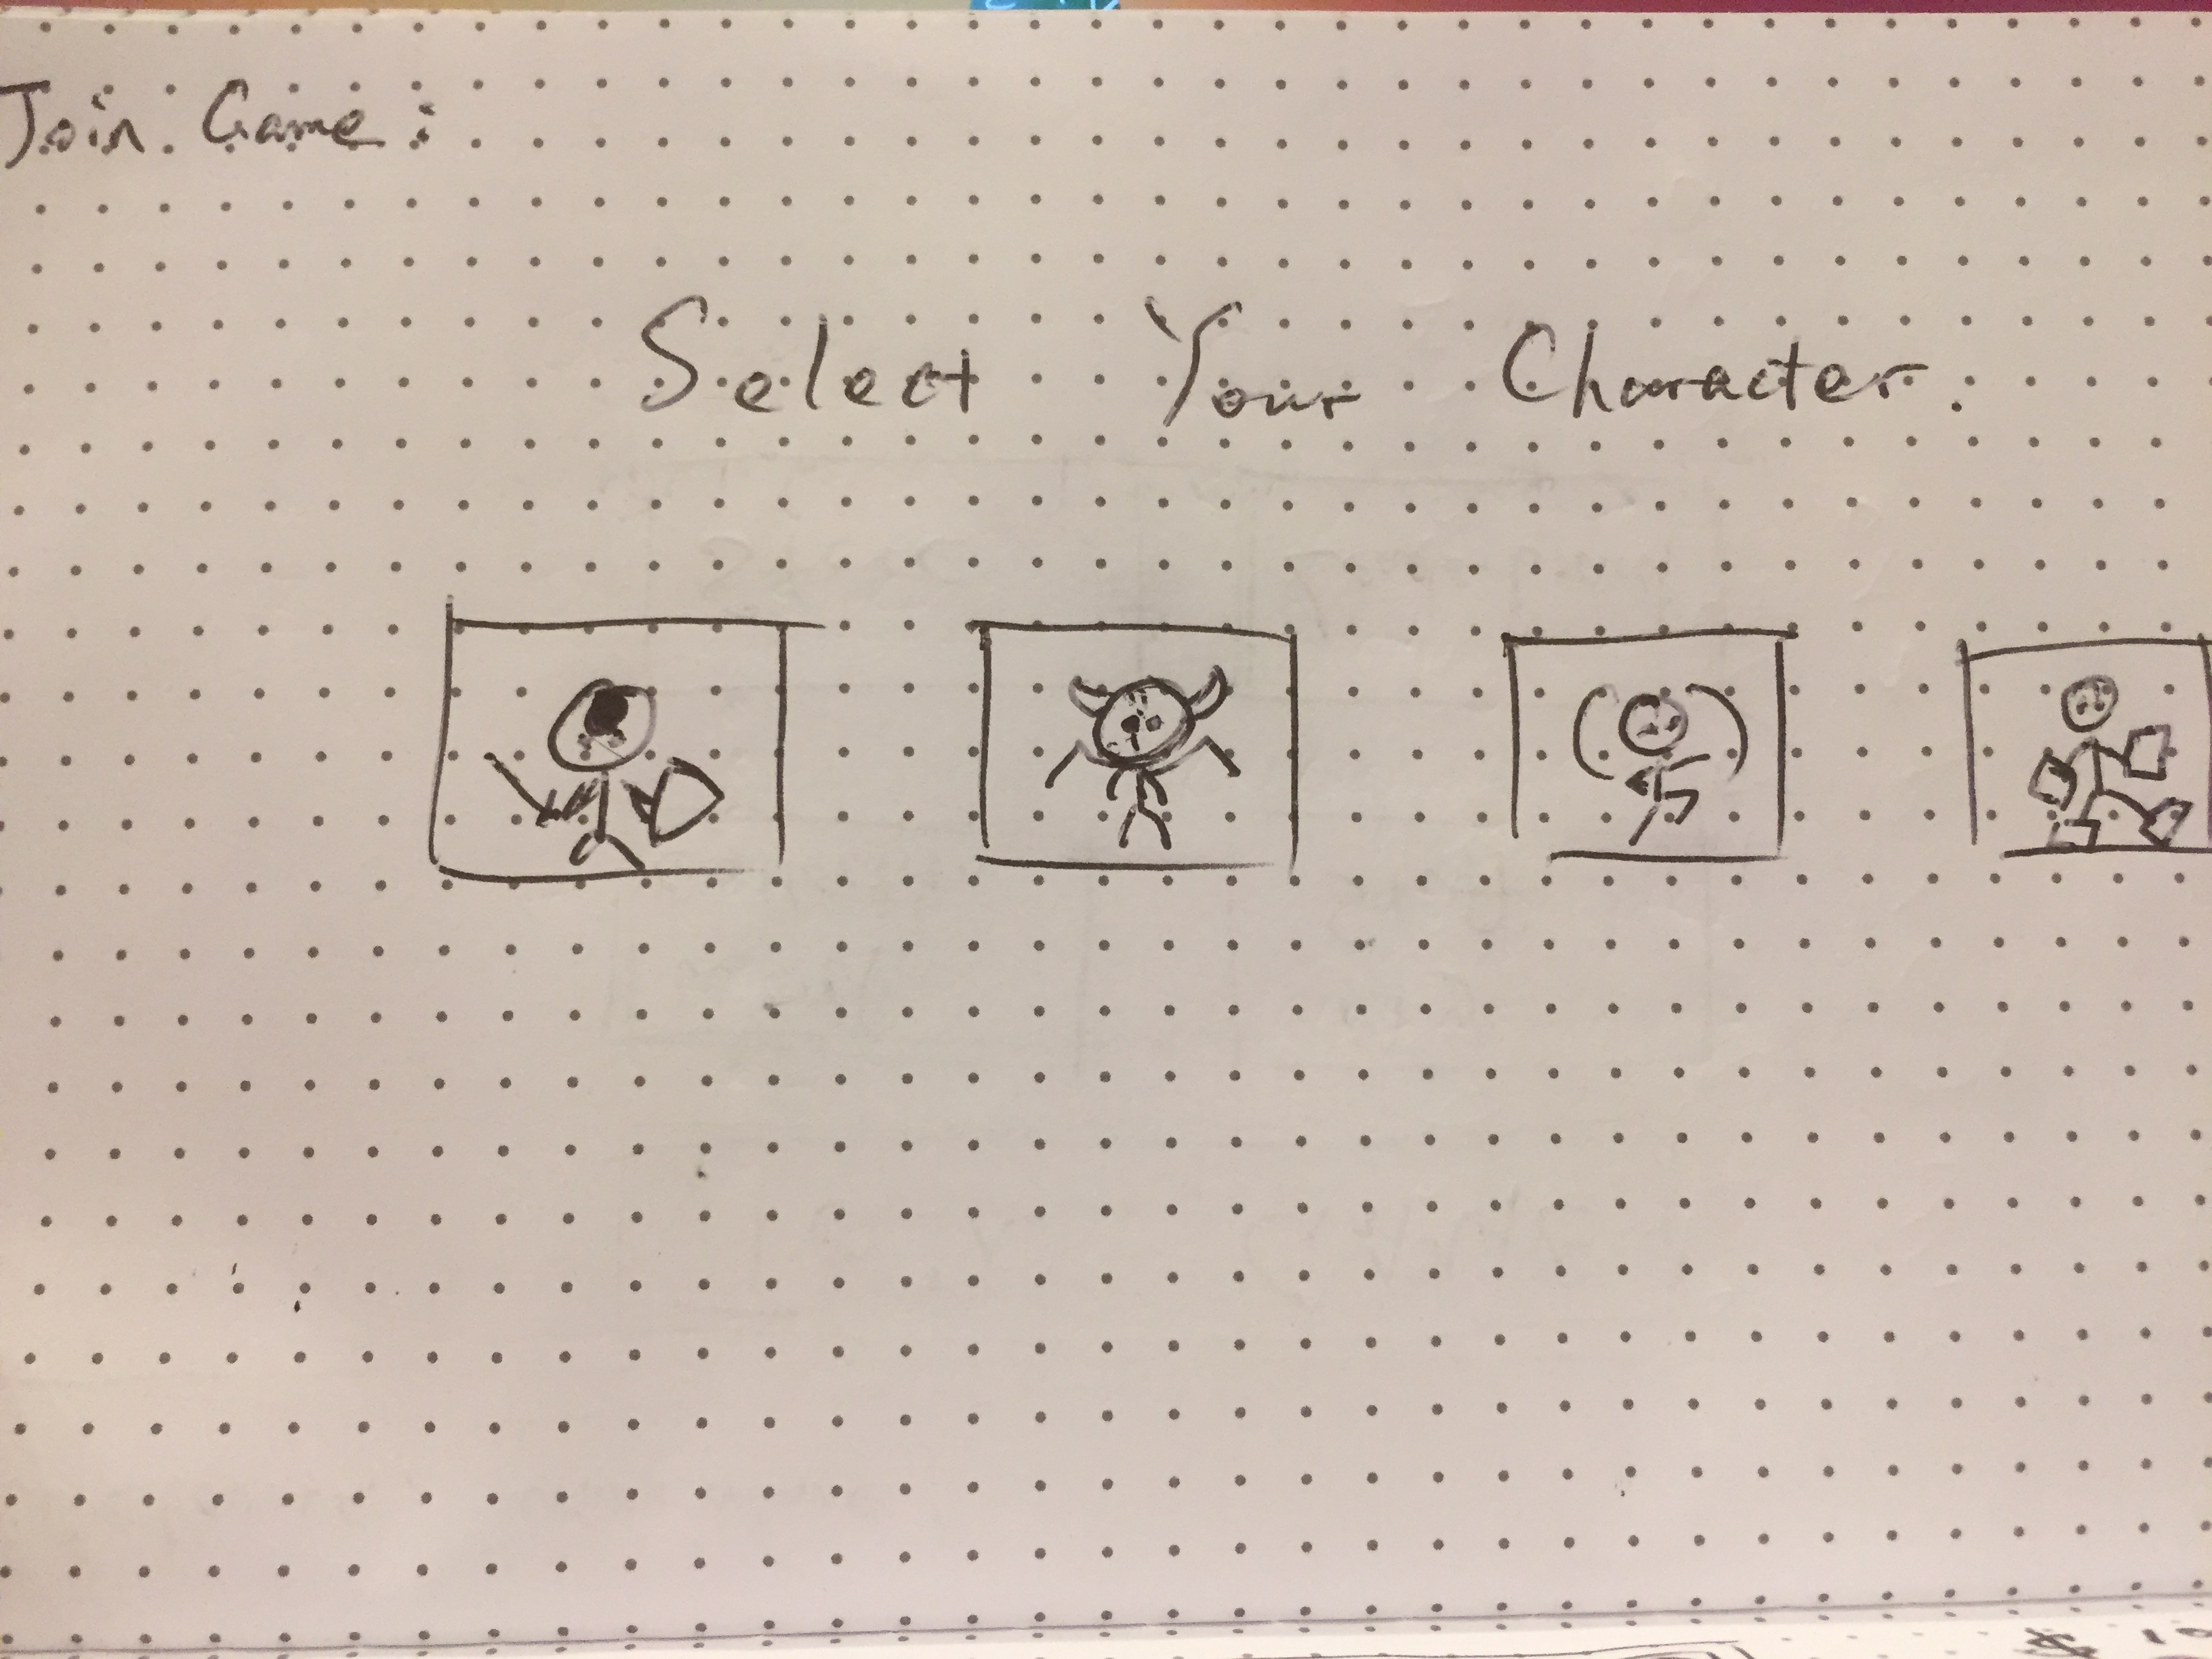 Join Game:
Select Your Character.